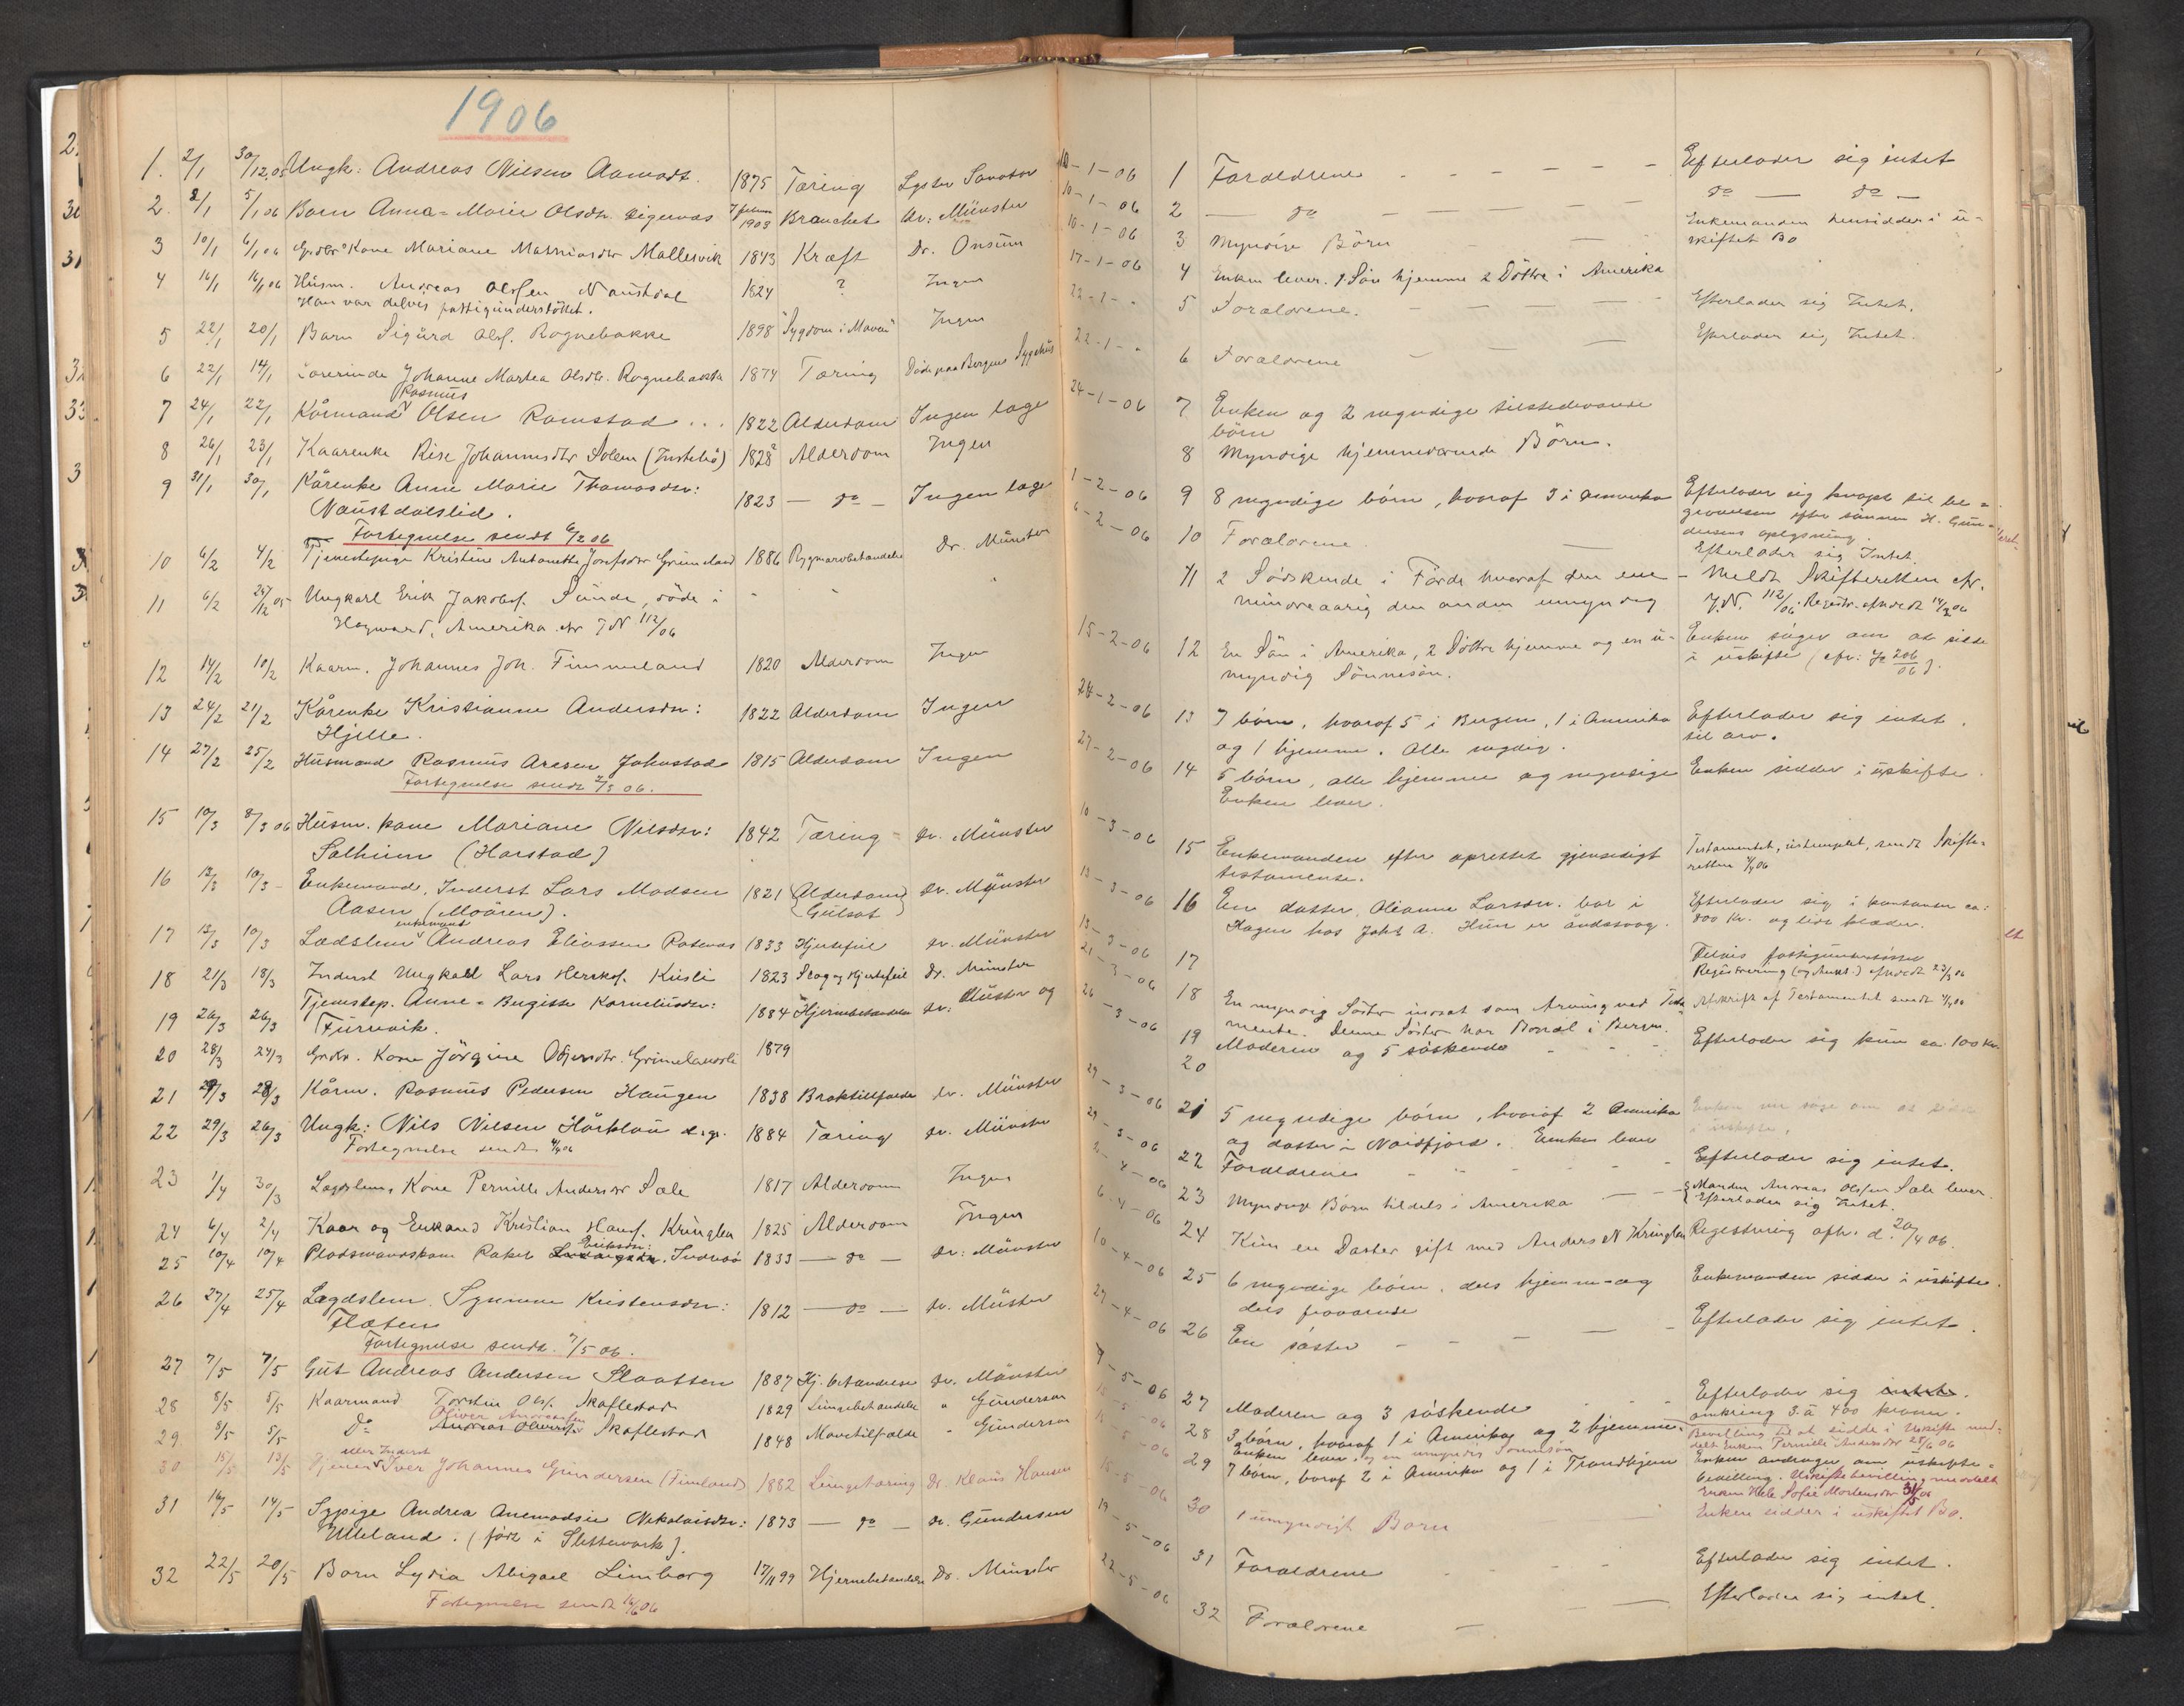 1906
1. 2/1 30/12.05 Ungk: Andreas Nilsen Aamodt. 1875 Tæring Lyster Sanator
2. 8/1 5/1 06 Barn Anna-Marie Olsdtr. 1903 dr: Münster
3 10/1 6/1 06 Kone Mariane Mathiasdtr Mallesvik 1843 Kræft Dr. Onsum
4 16/1 16/1 06 Husm. Andreas Olssen Naustdal 1824 ? Ingen
Han var delvis fattigunderstöttet.
5 22/1 20/1 Barn Sigurd Ols. Rognebakke 1898 "Sygdom i Maven" Ingen
6 22/1 14/1 Lærerinde Johanne Martea Olsdtr. Rognebakke 1874 Tæring Döde paa Bergens Sygehus
Rasmus
7 24/1 22/1 Kårmand Olsen Ramstad . . . 1822 Alderdom Ingen læge
8 26/1 23/1 Kaarenke Johannesdtr Solem 1828 Alderdom Ingen
9 31/1 30/1 Kårenke Anne Marie Thomasdtr: 1823 — do — Ingen læge
Naustdalslid.
Fortegnelse sendt 6/2 06
10 6/2 4/2 Tjenestepige Kristine Antonette Josefsdtr Grimeland 1886 Rygmarvbetændelse Dr. Münster
11 6/2 Ungkarl Erik Jakobs. Sunde, död i
Hayward, Amerika. cfr J N 112/06
12 14/2 10/2 Kaarm. Johannes Joh. Fimmeland 1820 Alderdom Ingen
13 24/2 21/2 Kårenke Kristianne Andersdtr: 1822 Alderdom Ingen
Hjelle.
14 27/2 25/2 Husmand Rasmus Aresen Jakobstad 1815 Alderdom Ingen
Fortegnelse sendt 2/3 06.
15 10/3 8/3 06 Husm. kone Mariane Nilsdtr: 1842 Tæring dr. Münster
Solheim (Harstad)
16 13/3 10/3 Enkemand, Inderst Lars Madsen 1821 Alderdom dr. Münster
Aasen (Moären). Gulsot
enkemand
17 13/3 10/3 Lædslem Andreas Eliassen 1833 Hjertefeil dr. Münster
18 21/3 18/3 Inderst Ungkarl Lars Herikss. Kusli 1823 Slag og Hjertefeil Dr. Münster
19 26/3 26/3 Tjenestep. Anne-Bergitte Korneliusdtr: 1884 Hjernebetændelse dr: Müster og
Furevik.
20 28/3 24/3 Kone Jörgine Grimelandsli 1879
21 29/3 28/3 Kårm. Rasmus Pedersen Haugen 1838 Broktilfælde dr. Münster
22 29/3 26/3 Ungk: Nils Nilsen Hårklau 1884 Tæring dr. Münster
Fortegnelse sendt 4/4 06
23 1/4 30/3 Lægdslem, Kone Pernille Andersdtr Sæle 1817 Alderdom Ingen
24 6/4 2/4 Kaar og Enkemand Kristian Hans. Kringlen 1825 Alderdom Ingen
Eriksdtr:
25 10/4 10/4 Pladsmandskone Rakel Indrebö 1833 — do — dr: Münster
26 27/4 25/4 Lægdslem Synneve Kristensdtr: 1812 — do — dr. Müster
Flaten
Fortegnelse sendt. 7/5 06.
27 7/5 7/5 Gut Andreas Andersen Slaatten 1887 Hj. betændelse dr. Münster
28 8/5 5/5 Kaarmand Torstein Ols. Skaflestad 1829 Lungebetændelse " Gundersen
Oliver Andreassen
29 8/5 5/5 Do Skaflestad 1848 Mavetilfælde " Gundersen
eller Inderst
30 15/5 13/5 Tjener Iver Johannes Gundersen (Fimland) 1882 Lungetæring Dr. Klaus Hansen
31 16/5 14/5 Sypige Andrea Anemadsie Nikolaisdtr: 1873 — do — dr. Gundersen
Ulleland. (fört i Slettevark).
32 22/5 20/5 Barn Lydia Abigael Limborg 17/11 99 Hjernebetændelse Dr. Münster
Fortegnelse sendt 16/6 06
10-1-06 1 Forældrene - - - - - Efterlader sig intet
10-1-06 2 — do — — do — do —
10-1-06 3 Myndige Börn — Enkemanden hensidder i u-
skiftet Bo
17-1-06 4 Enken lever. 1 Sön hjemme 2 Döttre i Amerika
22-1-" 5 Forældrene. — — — Efterlader sig Intet.
22-1-" 6 Forældrene — — Efterlader sig Intet
24-1-06 7 Enken og 2 myndige tilstedeværende
börn
8 Myndige hjemmeværende Börn.
1-2-06 9 8 myndige börn, hvoraf 3 i Amerika Efterlader sig knapt til be-
gravelsen efter sönnen H. Gun-
dersens oplysning.
6-2-06 10 Forældrene. — Efterlader sig Intet.
11 2 Södskende i Förde hvoraf den ene — Meldt Skifteretten cfr.
mindreaarig den anden umyndig J.N. 112/06. Registr. afholdt 14/2 06
15-2-06 12 En Sön i Amerika, 2 Döttre hjemme og en u- Enken söger om at sidde
myndig Sönnesön. i uskifte (cfr: J 206/06).
24-2-06 13 7 börn, hvoraf 5 i Bergen, 1 i Amerika Efterlader sig intet
og 1 hjemme. Alle myndig. til arv.
27-2-06 14 5 börn, alle hjemme og myndige Enken sidder i uskifte.
Enken lever.
10-3-06 15 Enkemanden efter oprettet gjensidigt Testamentet, ustemplet, sendt Skifte-
testamente. retten
13-3-06 16 En datter, Olianne Larsdtr. bor i Efterlader sig i kontanter ca:
Hagen hos Joh: A. Hun er åndssvag. 800 Kr. og lidt klæder.
13-3-06 17 Delvis fattigunderstöttet
21-3-06 18 En myndig Söster indsat som Arving ved Testa- Registrering afholdt 23/3 06
mente. Denne Söster har Bopæl i Bergen. Afskrift af Testamentet sendt
26-3-06 19 Moderen og 5 söskende - - - Efterlader sig kun ca. 100 kr.
20
29-3-06 21 5 myndige börn, hvoraf 2 Amerika Enken vil söge om at sidde
og datter i Nordfjord. Enken lever i uskifte.
29-3-06 22 Forældrene - - - Efterlader sig intet.
2-4-06 23 Myndige Börn tildels i Amerika — Manden Andreas Olssen Sæle lever.
Efterlader sig Intet.
6-4-06 24 Kun en Datter gift med Anders N Kringlen Registrering afh. d. 20/4 06.
10-4-06 25 6 myndige börn, dels hjemme- og Enkemanden sidder i uskifte.
dels fraværende
27-4-06 26 En söster - - - Efterlader sig intet.
9-5-06 27 Moderen og 3 söskende Efterlader sig intet.
omkring 3 à 400 kroner.
15-5-06 28 3 börn, hvoraf 1 i Amerika og 2 hjemme. Bevilling til at sidde i Uskifte med-
enken lever, og en umyndig Sönnesön delt Enken Pernille Andersdtr 28/6 06
15-5-06 29 7 börn, hvoraf 2 i Amerika og 1 i Trondhjem Enken andrager om uskifte-
bevilling. Uskiftebevilling meddelt
Enken Hele Sofie Mortensdtr
15-5-06 30 1 umyndigt Barn Enken sidder i uskiftet Bo.
19-5-06 31 Forældrene - - Efterlader sig intet.
22-5-06 32 Forældrene — — Efterlader sig intet.